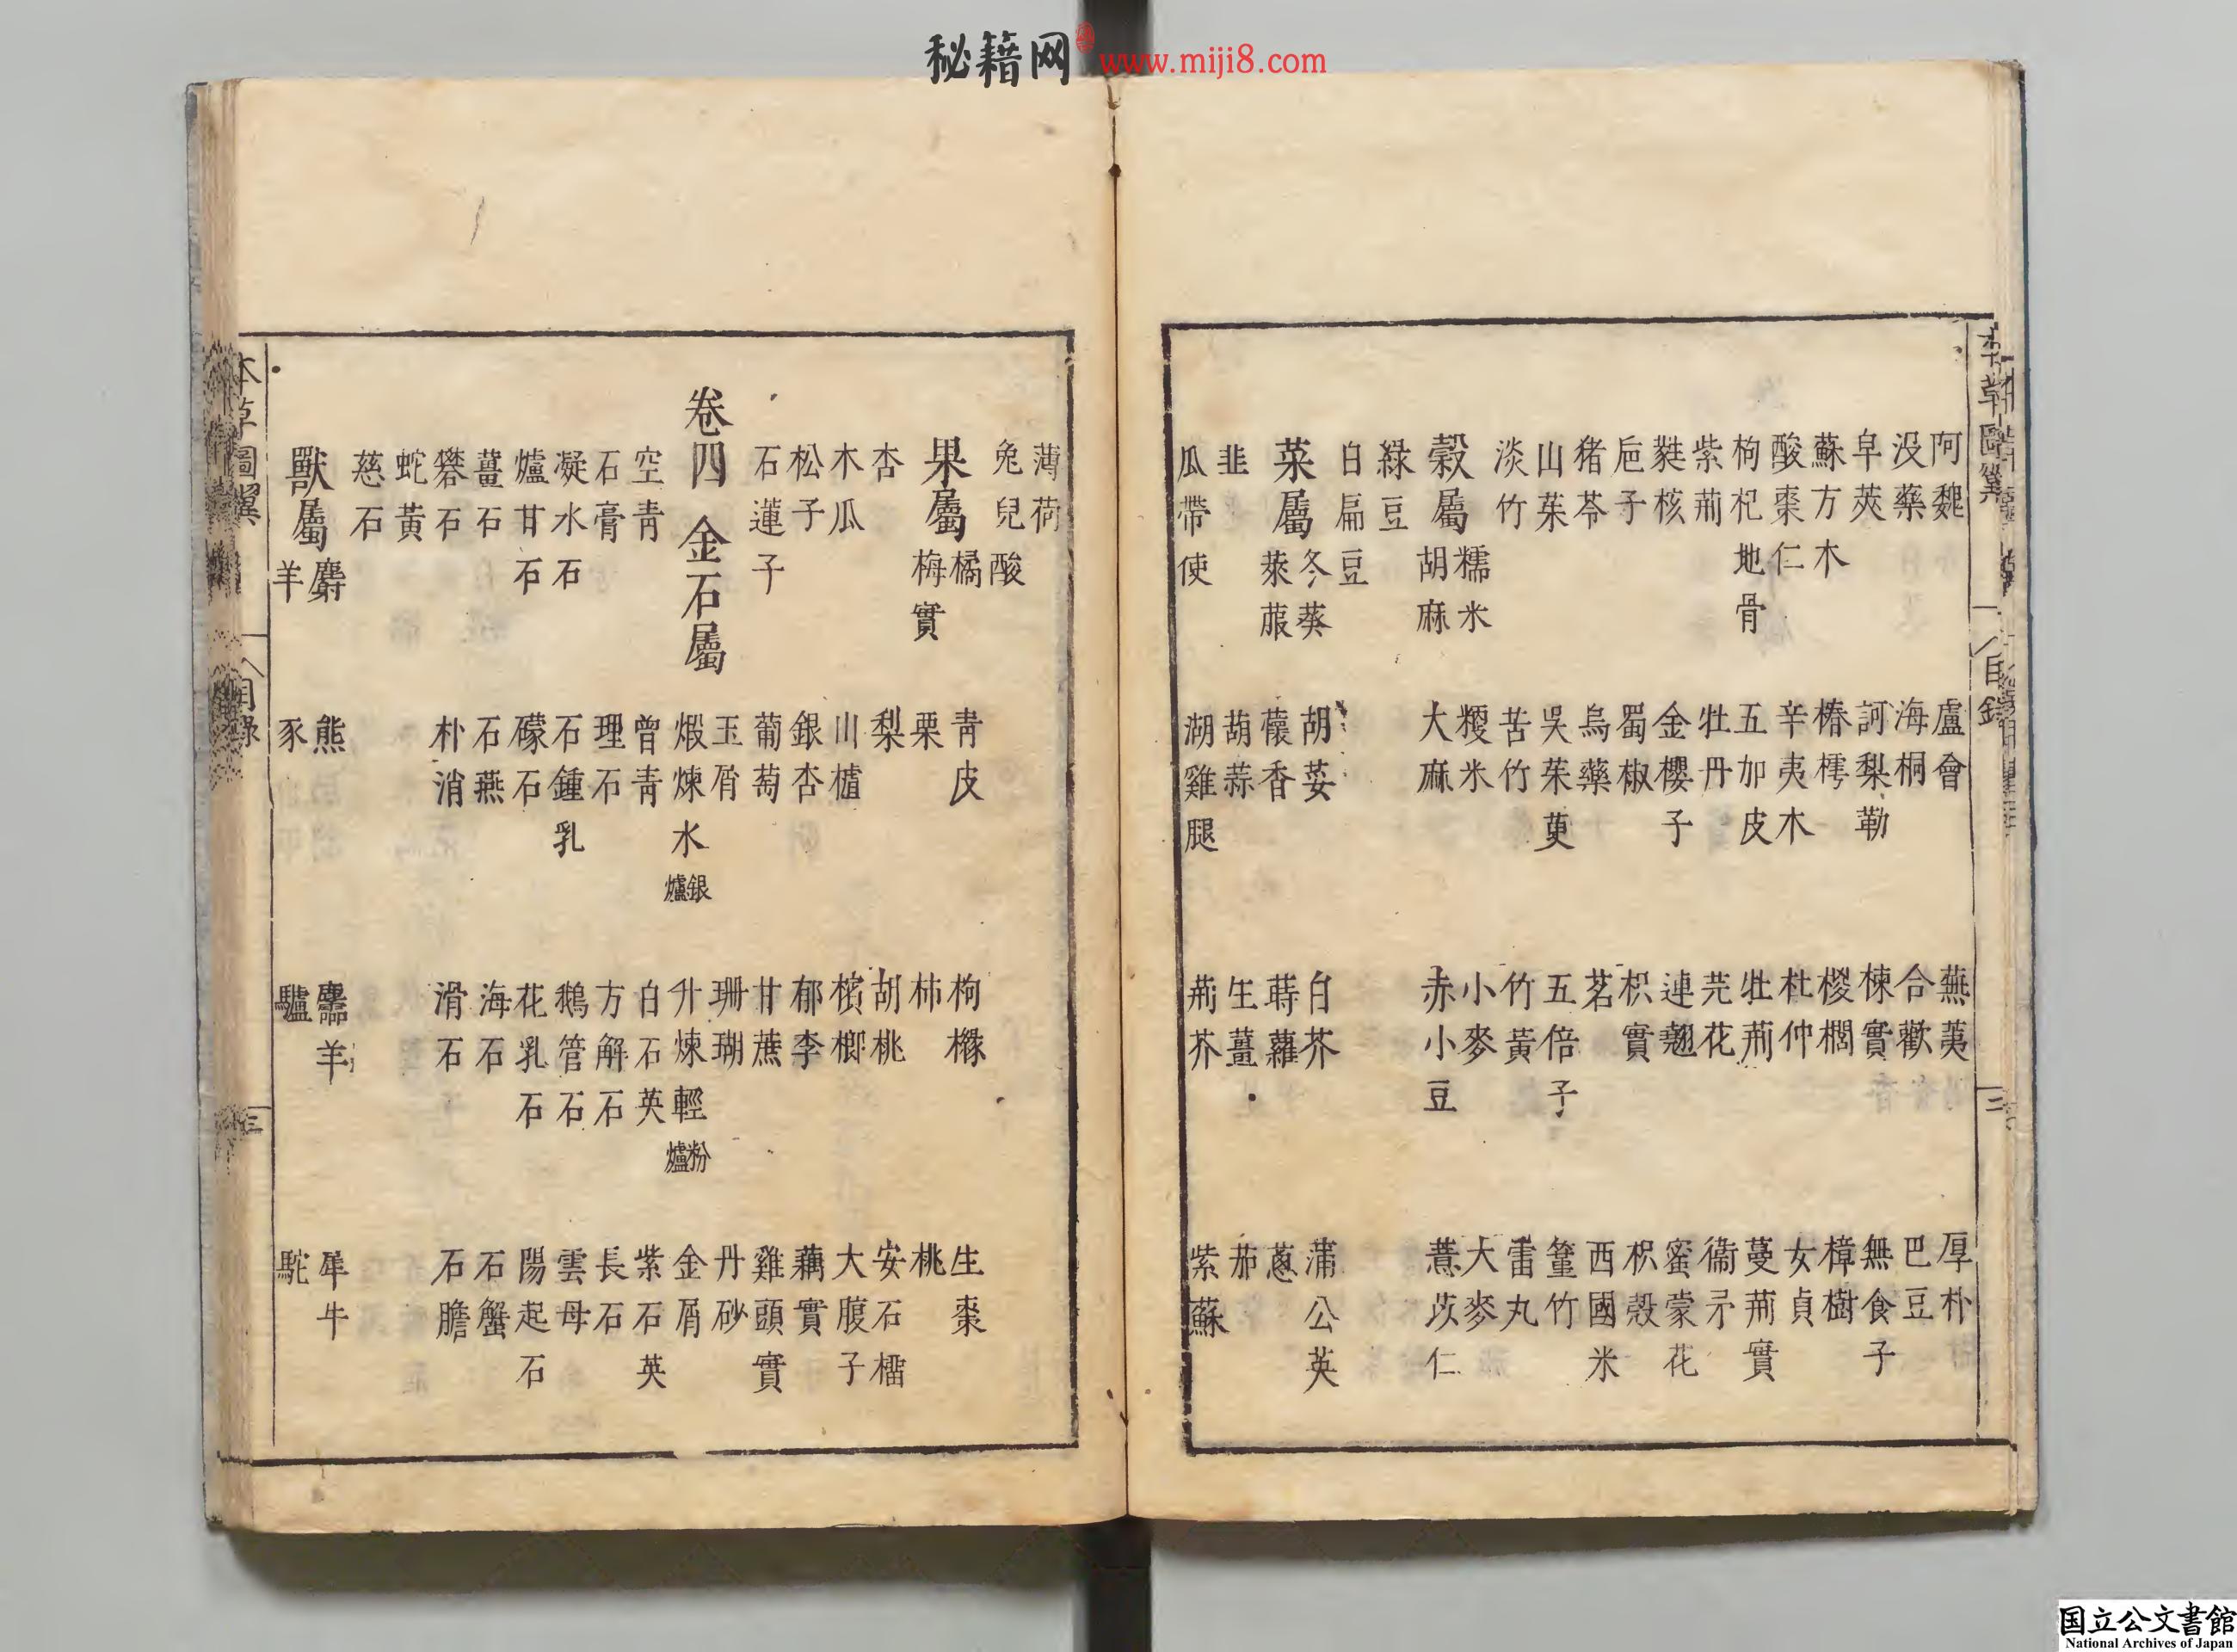 秘籍网 www.miji8.com
本草圖翼 目錄 三
阿魏 盧會 蕪荑 厚朴
没藥 海桐 合歡 巴豆
皁莢 訶梨勒 楝實 無食子
蘇方木 椿樗 椶櫚 樟樹
酸棗仁 辛夷木 杜仲 女貞
枸杞地骨 五加皮 牡荊 蔓荊實
紫荊 牡丹 芫花 衞矛
蕤核 金櫻子 連翹 蜜蒙花
巵子 蜀椒 枳實 枳殼
猪苓 烏藥 茗 西國米
山茱 吳茱萸 五倍子 篁竹
淡竹 苦竹 竹黃 雷丸
穀屬 糯米 稷米 小麥 大麥
胡麻 大麻 赤小豆 薏苡仁
綠豆
白扁豆
菜屬 冬葵 胡荽 白芥 蒲公英
萊菔 蘹香 蒔蘿 蔥
韭 葫蒜 生薑 茄
瓜帶使 湖雞腿 荊芥 紫蘇
薄荷
兔兒酸
果屬 橘 青皮 枸櫞 生棗
梅實 栗 柿 桃
杏 梨 胡桃 安石榴
木瓜 山樝 檳榔 大腹子
松子 銀杏 郁李 藕實
石蓮子 葡萄 甘蔗 雞頭實
玉屑 珊瑚 丹砂
卷四 金石屬 煅煉水銀爐 升煉輕粉爐 金屑
空青 曾青 白石英 紫石英
石膏 理石 方解石 長石
凝水石 石鍾乳 鵝管石 雲母
爐甘石 礞石 花乳石 陽起石
薑石 石燕 海石 石蟹
礬石 朴消 滑石 石膽
蛇黃
慈石
獸屬 麝 熊 羊 犀牛
羊 豕 驢 駝
本草圖翼 目錄 三
国立公文書館
National Archives of Japan